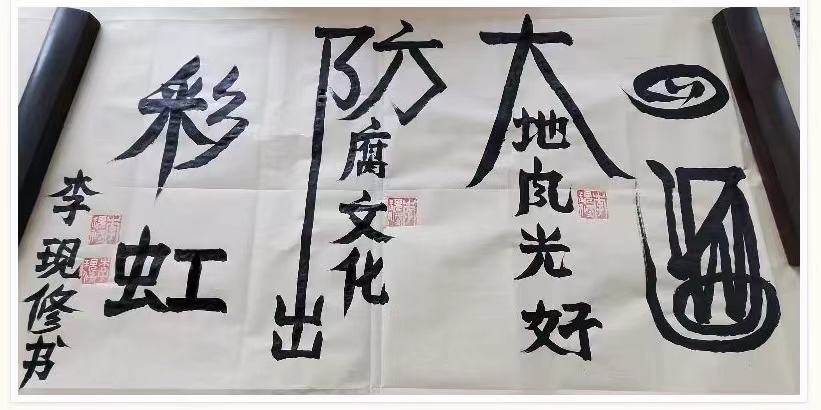 大地风光好
防腐文化出
彩虹
李現修书